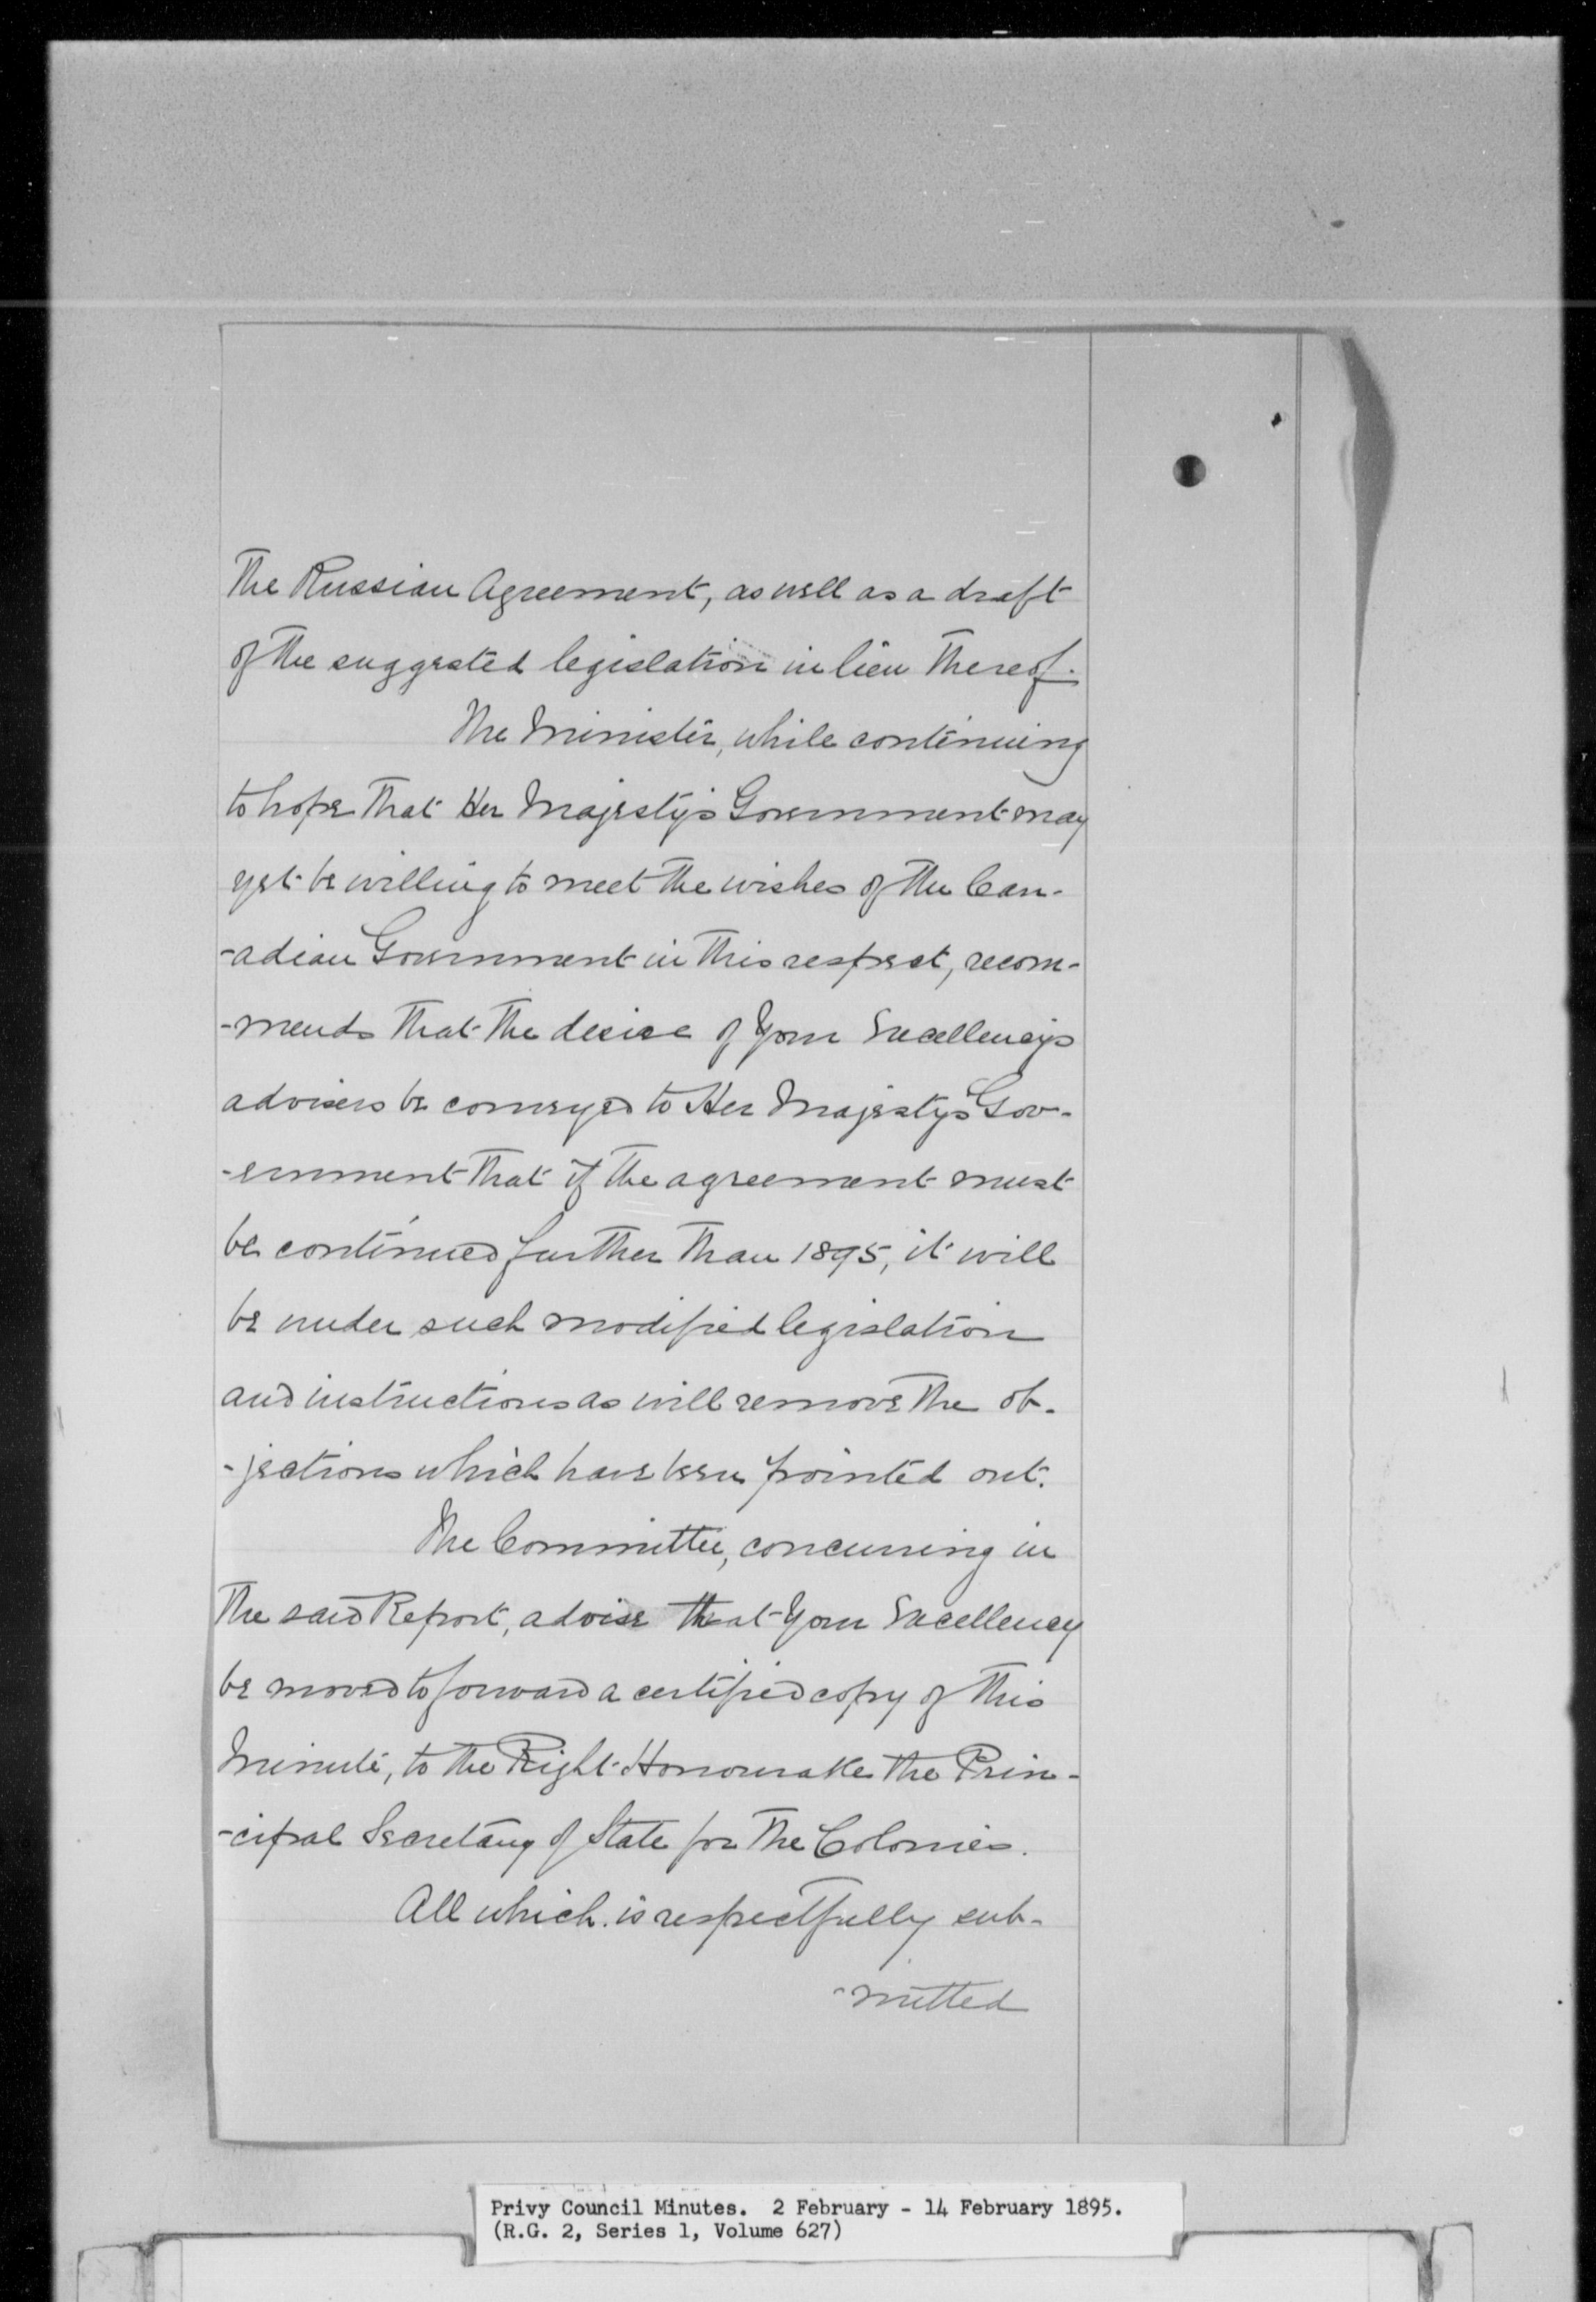 The Russian Agreement, as well as a draft
of the suggested legislation in lieu thereof.
The Minister, while continuing
to hope that Her Majesty's Government may
yet be willing to meet the wishes of the Can-
-adian Government in this respect, recom-
-mends that the desire of Your Excellency's
advisers be conveyed to Her Majesty's Gov-
-ernment that if the agreement must
be continued further than 1895, it will
be under such modified legislation
and instructions as will remove the ob-
-jections which have been pointed out.
The Committee, concurring in
the said Report, advise that Your Excellency
be moved to forward a certified copy of this
Minute, to the Right Honourable the Prin-
-cipal Secretary of State for the Colonies.
All which is respectfully sub-
-mitted
Privy Council Minutes. 2 February - 14 February 1895.
(R.G. 2, Series 1, Volume 627)